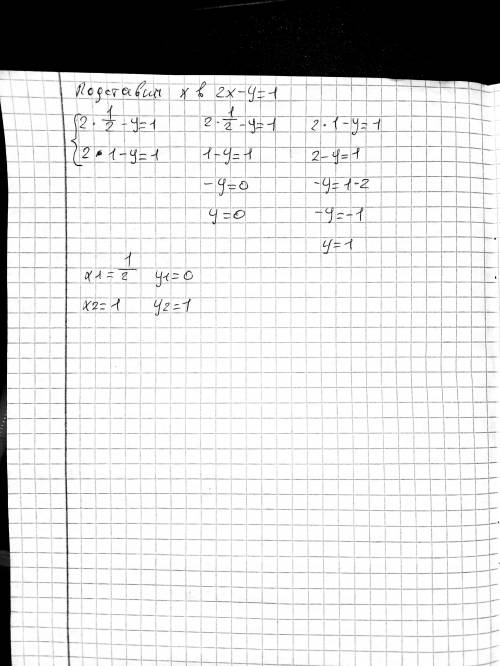 Подставим x в 2x-y=1
2·1/2-y=1 2·1/2-y=1 2·1-y=1
2·1-y=1 1-y=1 2-y=1
-y=0 -y=1-2
y=0 -y=-1
y=1
x1=1/2 y1=0
x2=1 y2=1